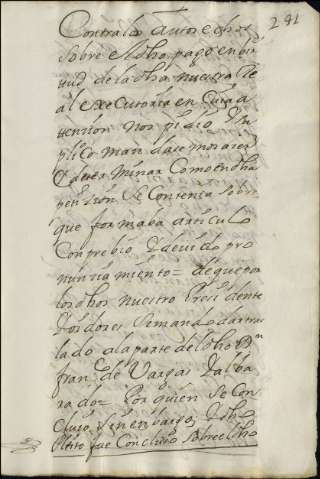 281
Contra los autos echos
sobre el dho pago en bir
tud de la dha nuestra Re
al executoria en cuia a
tension nos pidio y su
plico mandasemos aser
y determinar como en dha
petision se contenia sobre
que formaba articulo
con prebio y devido pro
nunsiamiento = de que por
los dhos nuestro Presidente
y oidores se mando dar tras
lado a la parte del dho Dn
franco de Vargas y alba
rado = Por quien se con
cluio sin enbargo y el dho
Pleito fue concluso sobre el dho